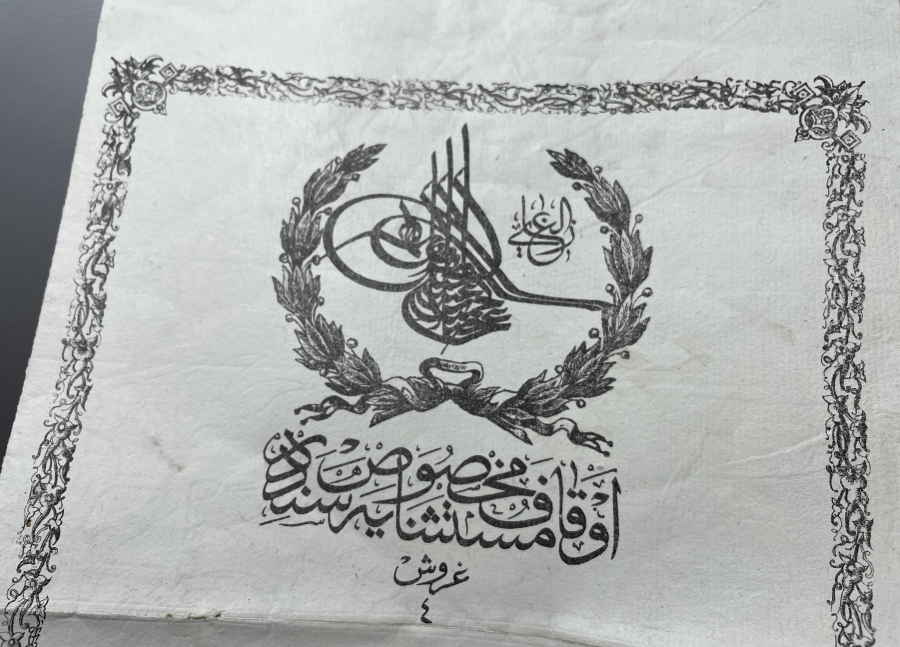 الغازي
اوقاف مستثنايه مخصوص سنددر
غروش
٤